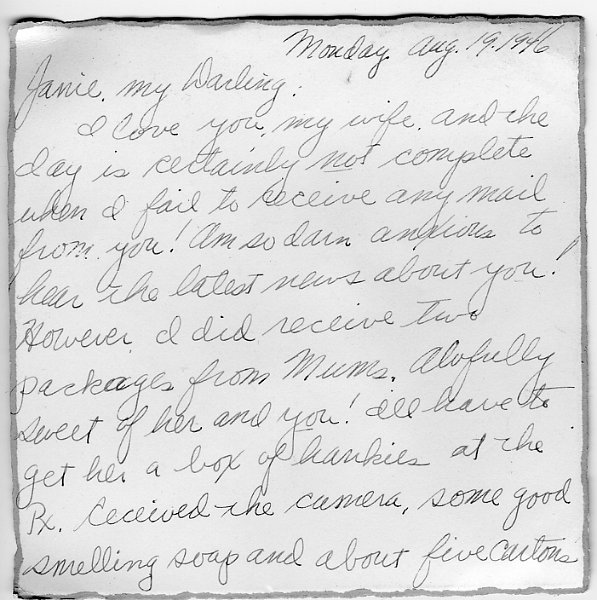 Monday, Aug. 19, 1946
Janie, my Darling:
I love you, my wife, and the
day is certainly not complete
when I fail to receive any mail
from you! Am so darn anxious to
hear the latest news about you!
However I did receive two
packages from Mums. Awfully
sweet of her and you! I'll have to
get her a box of hankies at the
Px. Received the camera, some good
smelling soap and about five cartons